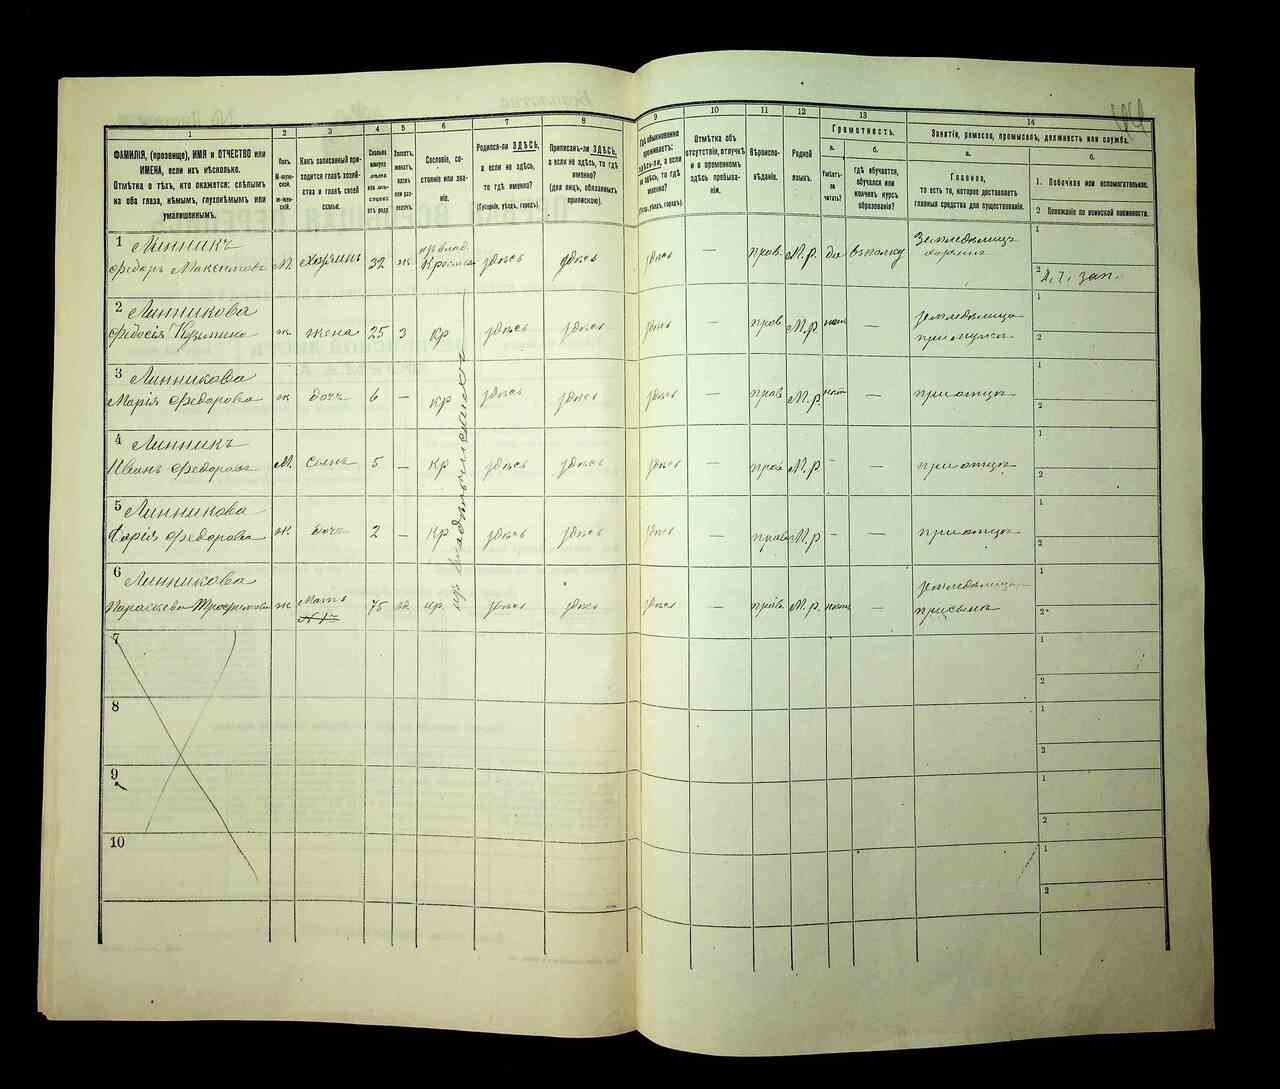 1 2 3 4 5 6 7 8 9 10 11 12 13 14
ФАМИЛІЯ, (прозвище), ИМЯ и ОТЧЕСТВО или
ИМЕНА, если ихъ нѣсколько.
Отмѣтка о тѣхъ, кто окажется: слѣпымъ
на оба глаза, нѣмымъ, глухонѣмымъ или
умалишеннымъ.
Полъ.
М-мужской.
Ж-женскій.
Какъ записанный приходится главѣ хозяйства и главѣ своей семьи.
Сколько минуло лѣтъ или мѣсяцевъ отъ роду.
Холостъ, женатъ, вдовъ или разведенъ.
Сословіе, состояніе или званіе.
Родился-ли ЗДѢСЬ,
а если не здѣсь,
то гдѣ именно?
(Губернія, уѣздъ, городъ).
Приписанъ-ли ЗДѢСЬ,
а если не здѣсь, то гдѣ
именно?
(для лицъ, обязанныхъ
припискою).
Гдѣ обыкновенно
проживаетъ:
здѣсь-ли, а если
не здѣсь, то гдѣ
именно?
(Губ., уѣздъ, городъ).
Отмѣтка объ
отсутствіи, отлучкѣ
и о временномъ
здѣсь пребываніи.
Вѣроисповѣданіе.
Родной
языкъ.
Грамотность.
а. б.
Умѣетъ-ли
читать?
гдѣ обучается,
обучался или
кончилъ курсъ
образованія?
Занятіе, ремесло, промыселъ, должность или служба.
а. б.
Главное,
то есть то, которое доставляетъ
главныя средства для существованія.
1. Побочное или вспомогательное.
2 Положеніе по воинской повинности.
1 Линникъ
Федоръ Максимовъ М. хозяинъ 32 ж здѣсь здѣсь здѣсь — прав. М.р. да Земледѣлецъ
хозяинъ
1
2
2 Линникова
Федосія ж жена 25 З кр здѣсь здѣсь здѣсь — прав М.р. нѣтъ — земледѣлица
при мужѣ
1
2
3 Линникова
Марія Федорова ж дочь 6 — кр здѣсь здѣсь здѣсь — прав М.р. нѣт — при отцѣ
1
2
4 Линникъ
Иванъ Федоровъ М. сынъ 5 — кр здѣсь здѣсь здѣсь — прав М.р. — — при отцѣ
1
2
5 Линникова
Федорова ж. дочь 2 — кр здѣсь здѣсь здѣсь — прав М.р — — при отцѣ
1
2
6 Линникова
Параскева Трофимова ж мать 75 вд кр. здѣсь здѣсь здѣсь — прав. М.р. нѣтъ — земледѣлица
при сынѣ
1
2
7
1
2
8
1
2
9
1
2
10
1
2